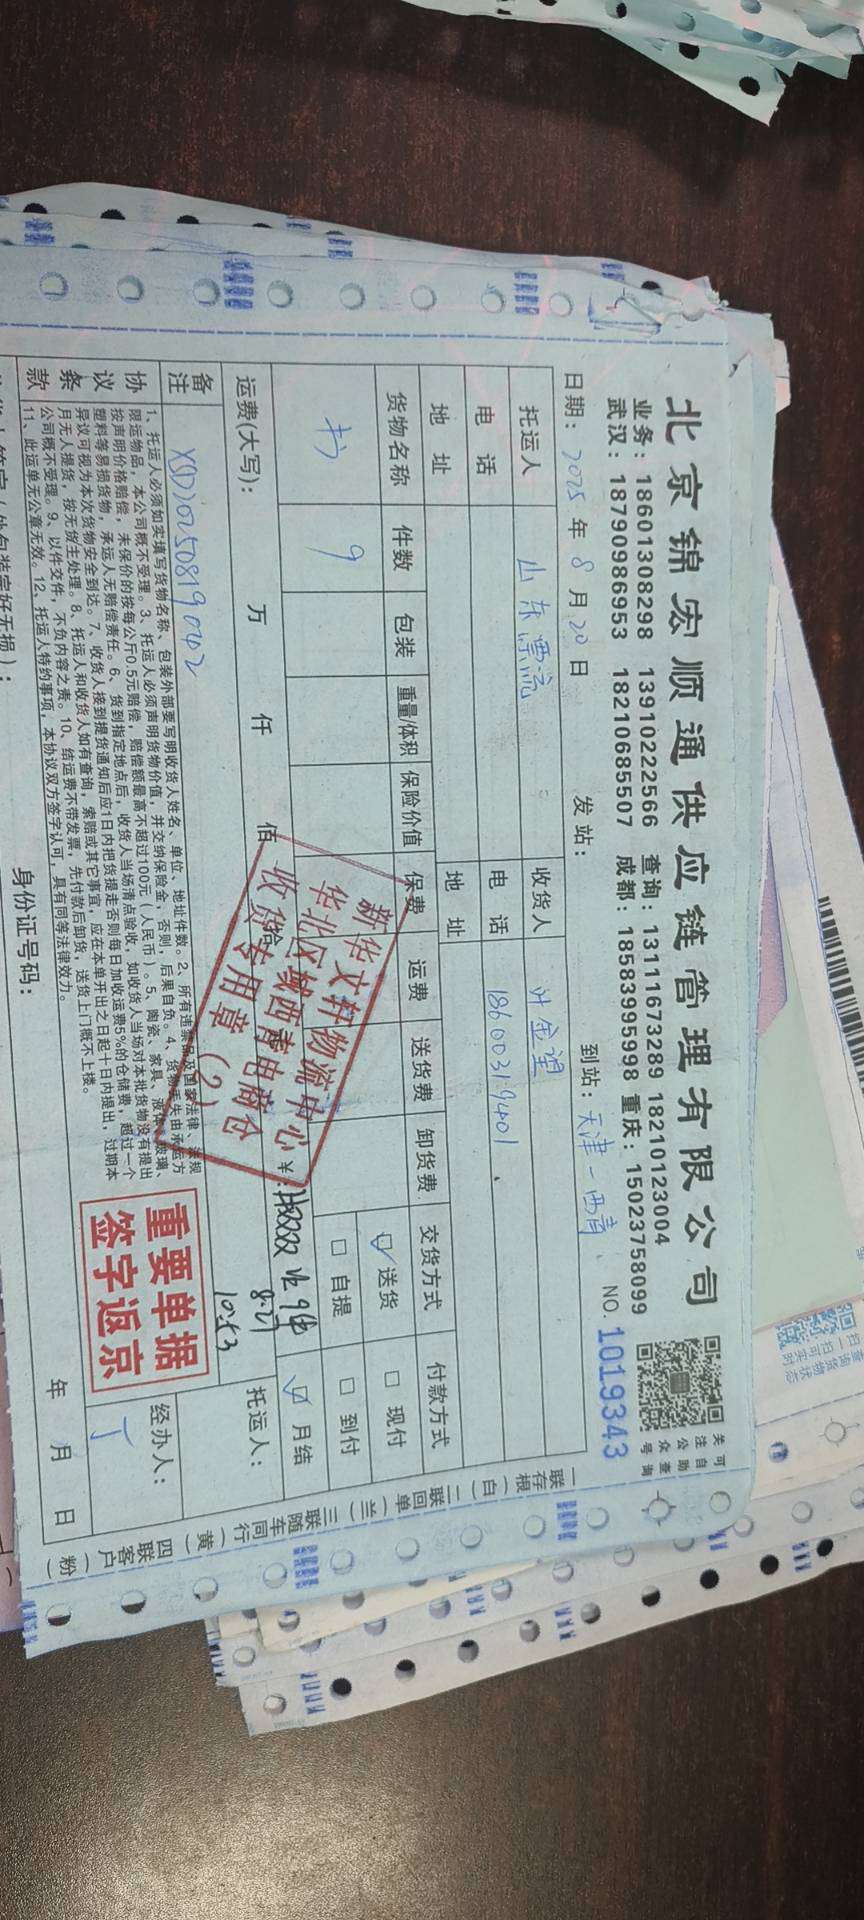 北京锦宏顺通供应链管理有限公司
业务：18601308298 13910222566 查询：13111673289 18210123004
武汉：18790986953 18210685507 成都：18583995998 重庆：15023758099
关注公众号
可自助查询
日期：2025年8月20日 发站： 到站：天津-西青 NO.1019343
托运人 山东漂流 收货人 叶金望
电话 电话 18600319401
地址 地址
货物名称 件数 包装 重量/体积 保险价值 保费 运费 送货费 卸货费 交货方式 付款方式
书 9 ☑送货 □现付
□自提 □到付
☑月结
运费(大写)： 万 仟 佰 拾 ¥：
收 9件
8.21
10:53
托运人：
备注 XSD20250819042
新华文轩物流中心
华北区域西青电商仓
收货专用章（2）
协议条款
1、托运人必须如实填写货物名称、包装外部要写明收货人姓名、单位、地址件数。2、所有违禁品及国家法律、法规
限运物品，本公司概不受理。3、托运人必须声明货物价值，并交纳保险金，否则，后果自负。4、货物丢失由承运方
按声明价格赔偿，未保价的按每公斤0.5元赔偿，赔偿额最高不超过100元（人民币）。5、陶瓷、家具、液体、玻璃、
塑料等易损货物，承运人无赔偿责任。6、货到指定地点后，收货人当场清点验收，如收货人当场对本批货物没有提出
异议可视为本次货物安全到达。7、收货人接到提货通知后应1日内把货提走否则每日加收运费5%的仓储费，超过一个
月无人提货，按无货主处理。8、托运人和收货人如有查询，索赔或其它事宜，应在本单开出之日起十日内提出，过期本
公司概不受理。9、以件交件，不负内容之责。10、结运费不带发票，先付款后卸货，送货上门概不上楼。
11、此运单无公章无效。12、托运人特约事项，本协议双方签字认可，具有同等法律效力。
重要单据
签字返京
经办人：
丁
（外包装完好无损）： 身份证号码： 年 月 日
一联存根（白） 二联回单（兰） 三联随车同行（黄） 四联客户（粉）
扫一扫可实时
查询货物状态